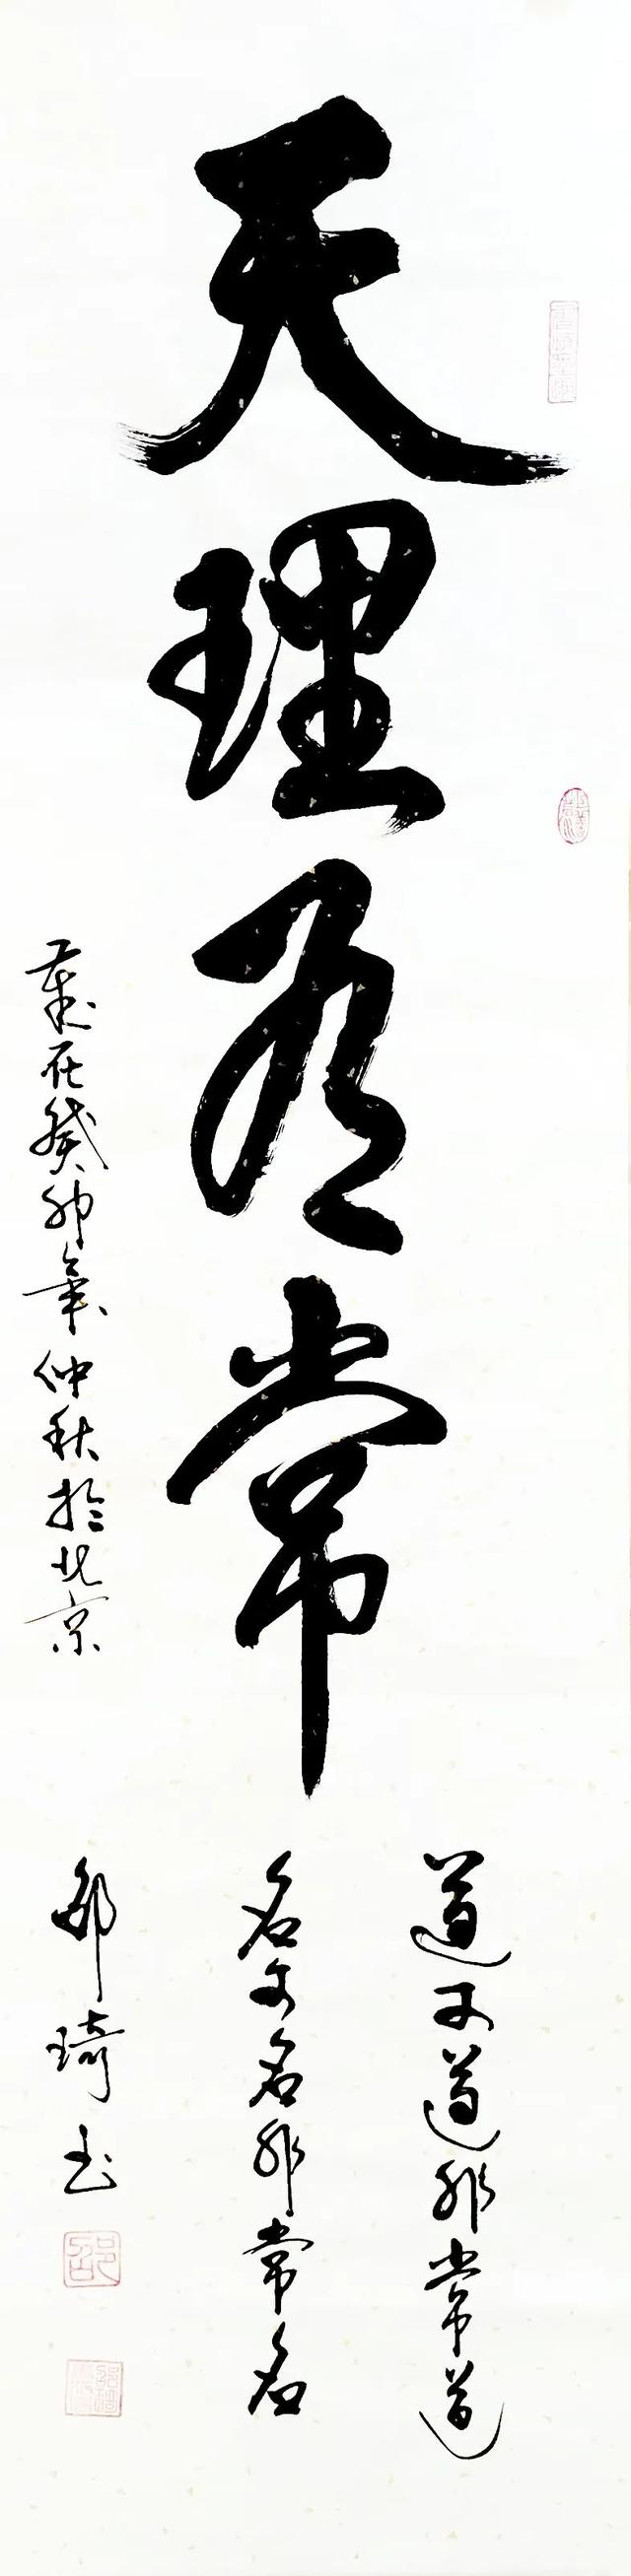 天理有常
道可道非常道
名可名非常名
歲在癸卯年仲秋於北京
邵琦书
邵